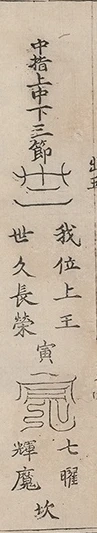 中指上中下三節
我位上王
世久長榮
寅
七曜
輝魔
坎